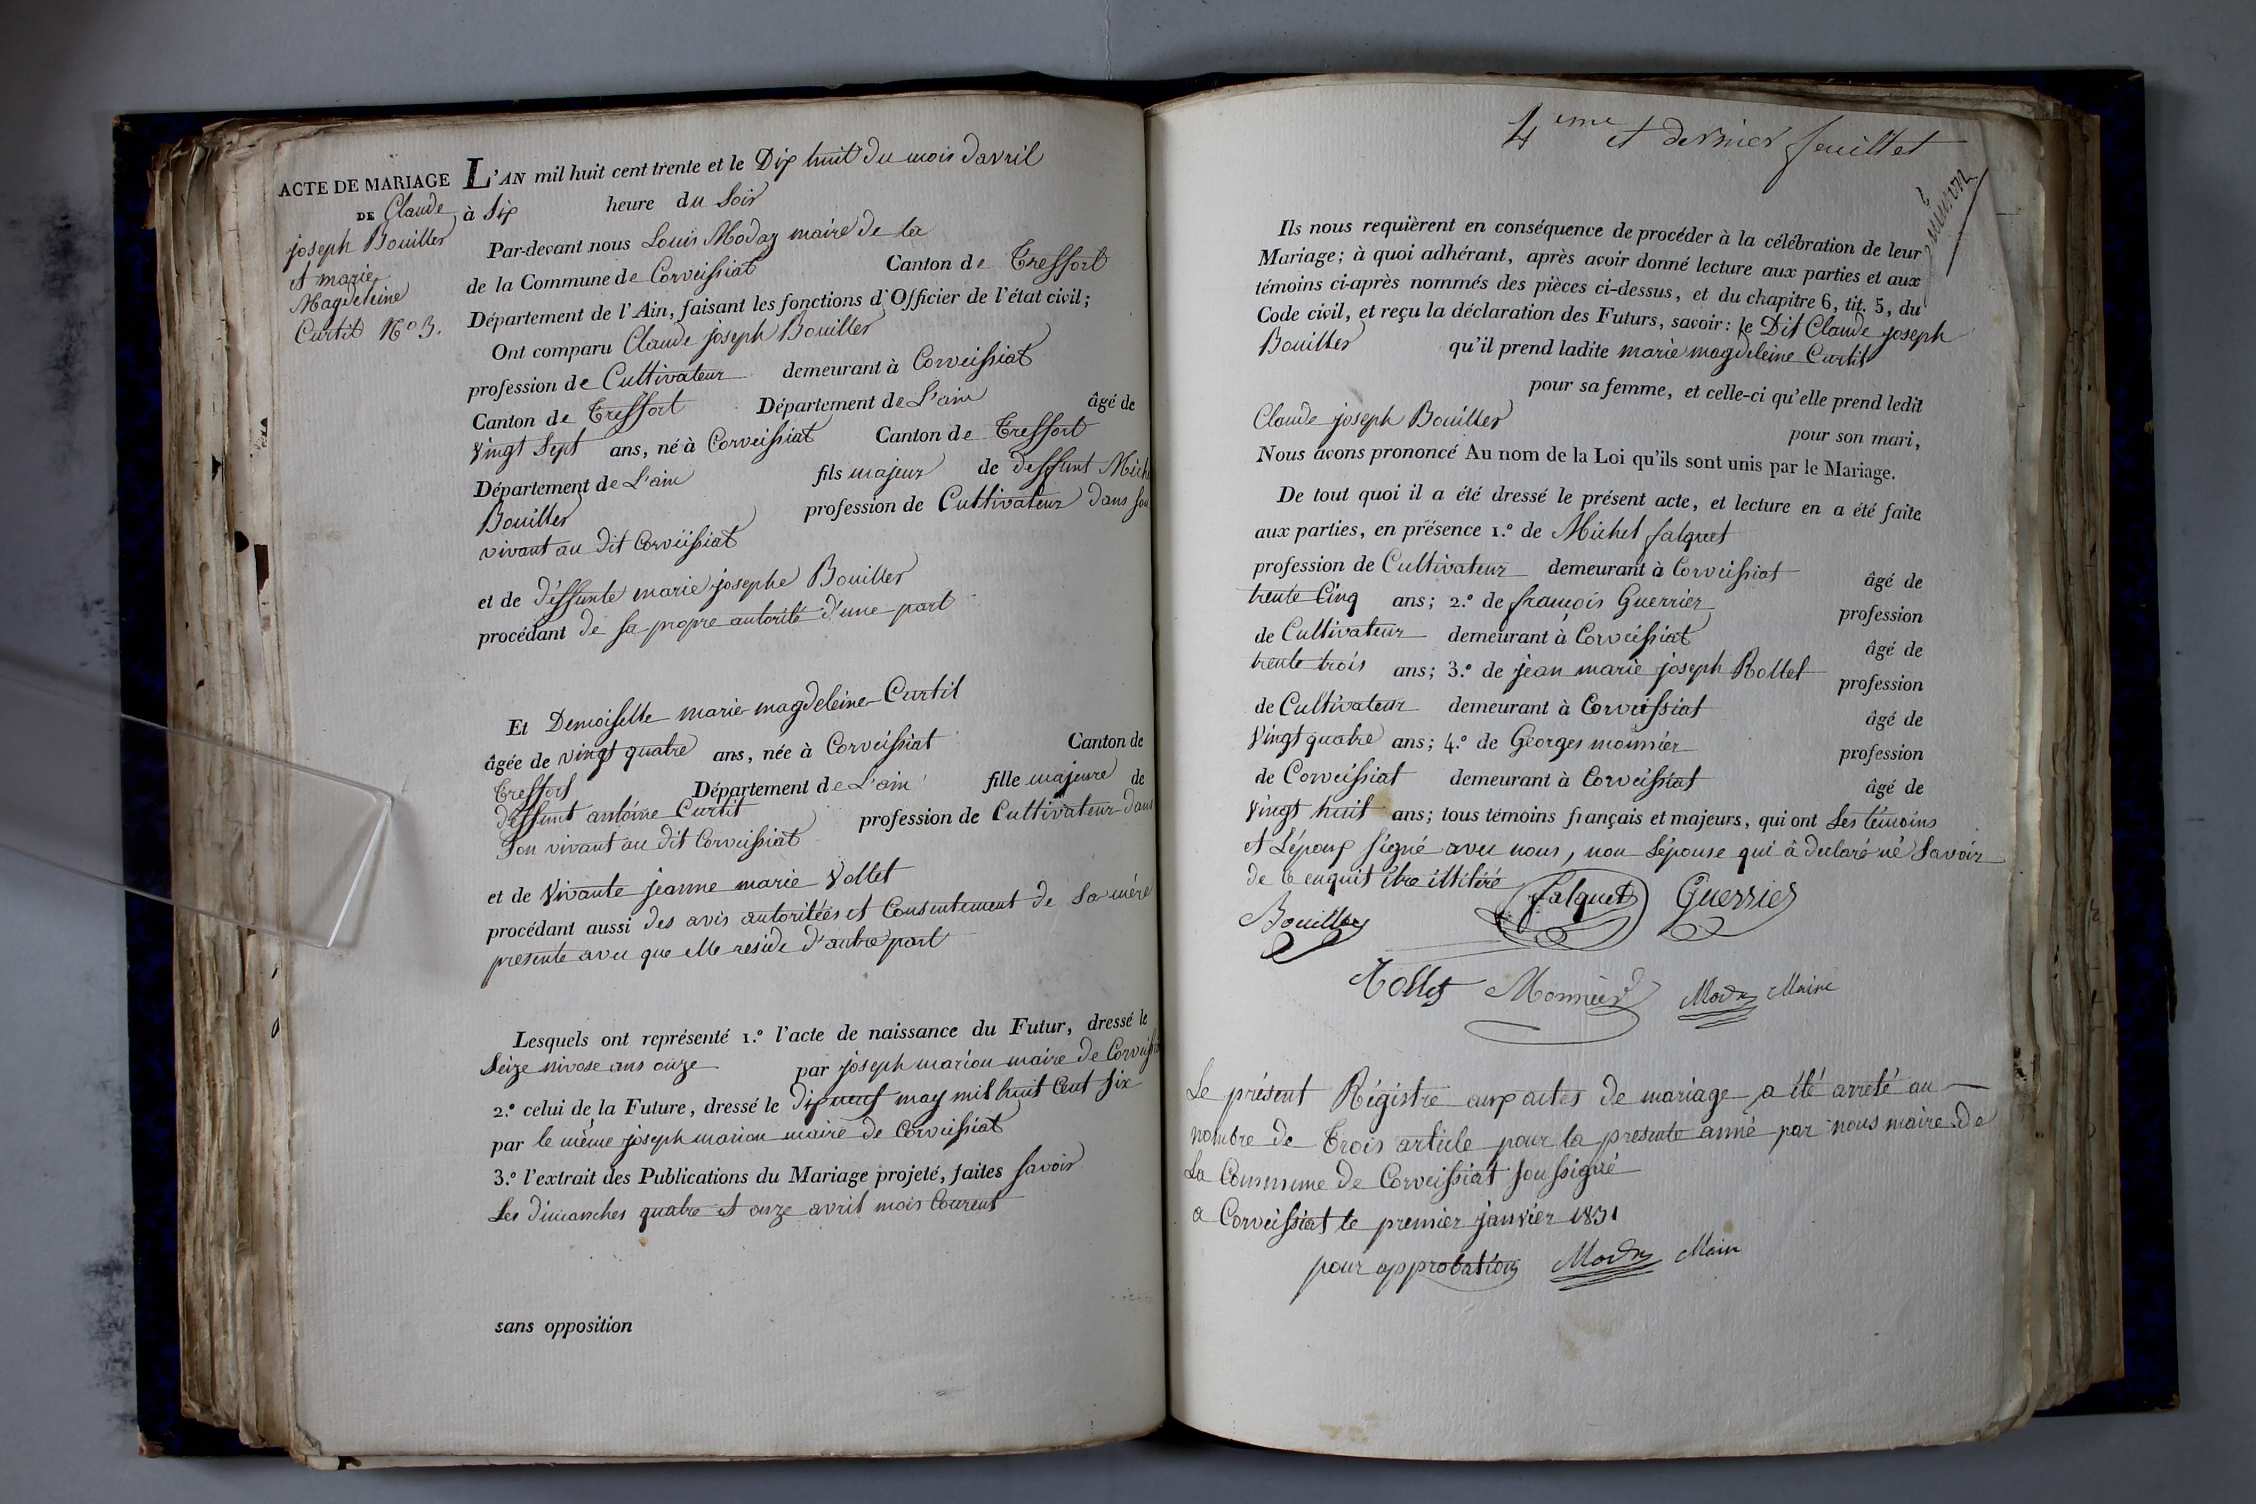 ACTE DE MARIAGE
DE Claude
joseph Bouiller
et marie
Magdeleine
Curtil No 3.
L'AN mil huit cent trente et le Dix huit du mois d'avril
à Six heure du Soir
Par-devant nous Louis Modaz maire de la
de la Commune de Corveissiat Canton de Treffort
Département de l'Ain, faisant les fonctions d'Officier de l'état civil;
Ont comparu Claude joseph Bouiller
profession de Cultivateur demeurant à Corveissiat
Canton de Treffort Département de L'ain âgé de
Vingt Sept ans, né à Corveissiat Canton de Treffort
Département de L'ain fils majeur de deffunt Mich
Bouiller profession de Cultivateur dans son
vivant au dit Corveissiat
et de déffunte marie josephe Bouiller
procédant de sa propre autorité d'une part
Et Demoiselle marie magdeleine Curtil
âgée de vingt quatre ans, née à Corveissiat Canton de
Treffort Département de L'ain fille majeure de
déffunt antoine Curtil profession de Cultivateur dans
Son vivant au dit Corveissiat
et de Vivante jeanne marie Vollet
procédant aussi des avis autoritées et Consentement de sa mère
presente avec que elle reside d'autre part
Lesquels ont représenté 1.º l'acte de naissance du Futur, dressé le
Seize nivose ans onze par joseph marion maire de Corveissi
2.º celui de la Future, dressé le dix neuf may mil huit Cent Six
par le même joseph marion maire de Corveissiat
3.º l'extrait des Publications du Mariage projeté, faites savoir
Les dimanches quatre et onze avril mois Courent
sans opposition
4eme et dernier feuillet
Ils nous requièrent en conséquence de procéder à la célébration de leur
Mariage; à quoi adhérant, après avoir donné lecture aux parties et aux
témoins ci-après nommés des pièces ci-dessus, et du chapitre 6, tit. 5, du
Code civil, et reçu la déclaration des Futurs, savoir: le Dit Claude joseph
Bouiller qu'il prend ladite marie magdeleine Curtil
pour sa femme, et celle-ci qu'elle prend ledit
Claude joseph Bouiller pour son mari,
Nous avons prononcé Au nom de la Loi qu'ils sont unis par le Mariage.
De tout quoi il a été dressé le présent acte, et lecture en a été faite
aux parties, en présence 1.º de Michel falquet
profession de Cultivateur demeurant à Corveissiat âgé de
trente Cinq ans; 2.º de françois Guerrier profession
de Cultivateur demeurant à Corveissiat âgé de
trente trois ans; 3.º de jean marie joseph Rollet profession
de Cultivateur demeurant à Corveissiat âgé de
Vingt quatre ans; 4.º de Georges monnier profession
de Corveissiat demeurant à Corveissiat âgé de
Vingt huit ans; tous témoins français et majeurs, qui ont Les témoins
et L'époux signé avec nous, non L'épouse qui à declaré né Savoir
de ce enquit être illitéré
Bouiller falquet Guerrier
Rollet Monnier Modaz Maire
Le présent Régistre aux actes de mariage a été arreté au
nombre de Trois article pour la presente anné par nous maire de
La Commune de Corveissiat soussigné
a Corveissiat le premier janvier 1831
pour approbation Modaz Maire